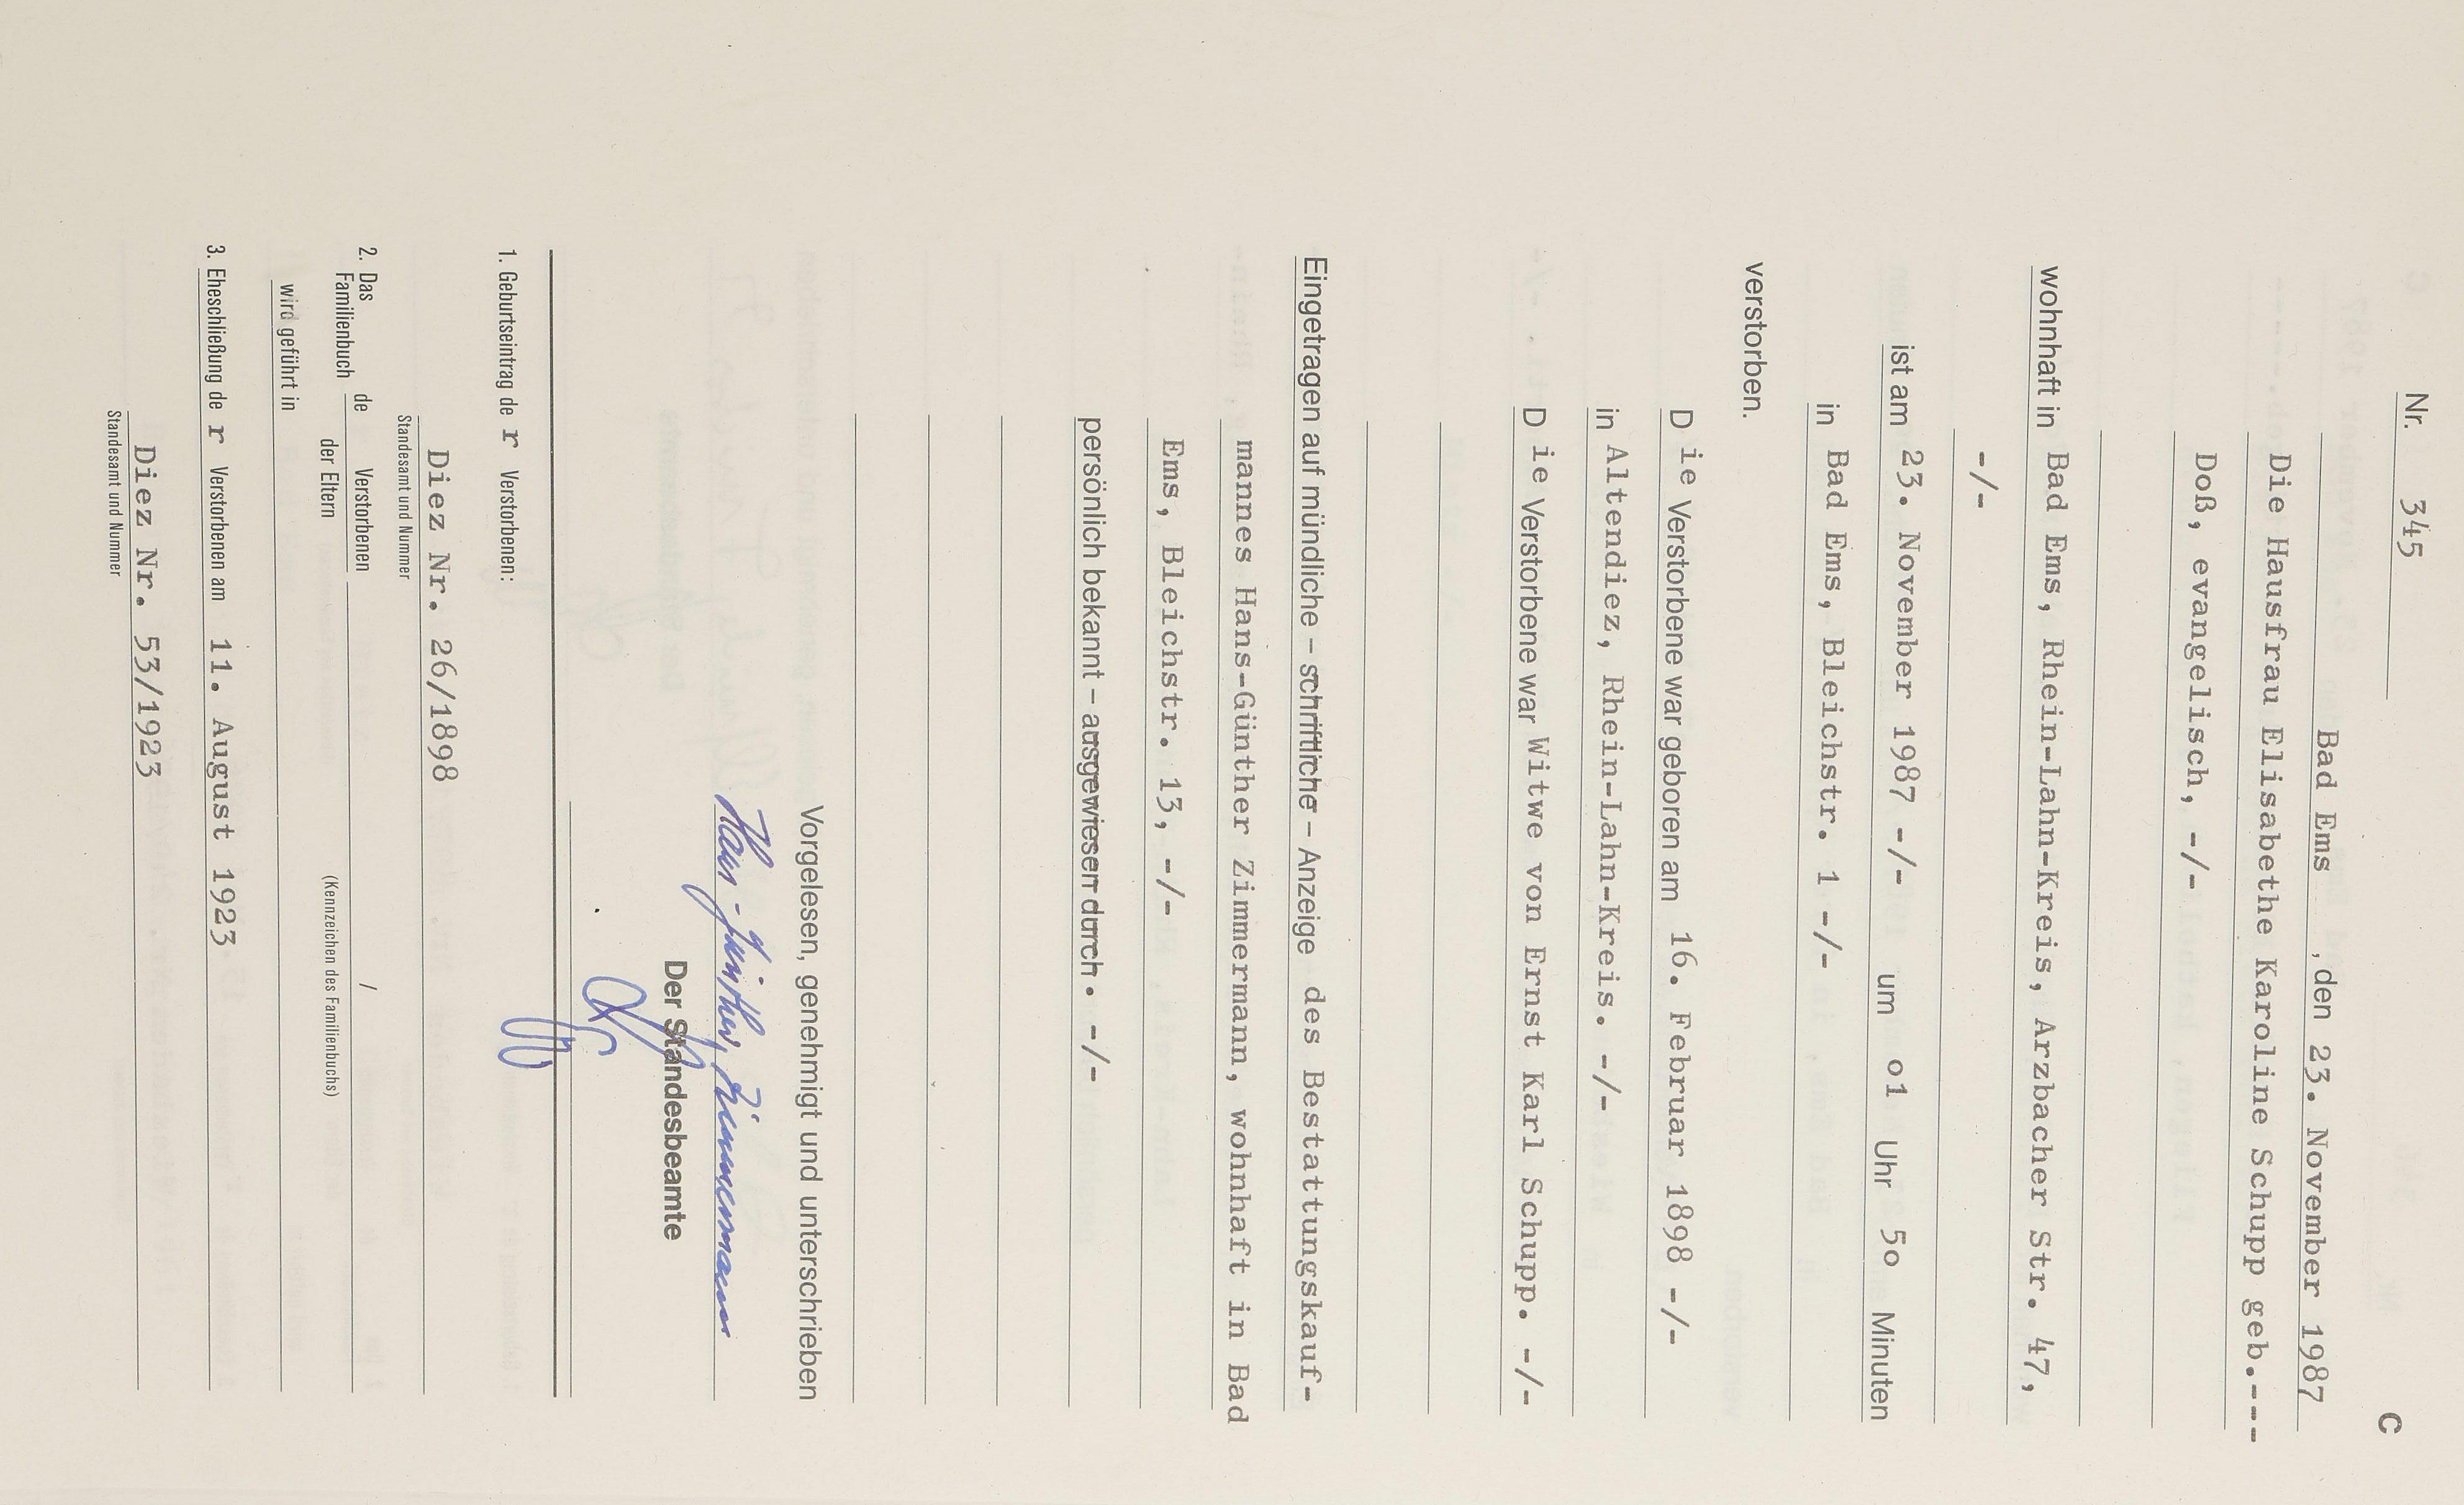 C
Nr. 345
Bad Ems , den 23. November 1987
Die Hausfrau Elisabethe Karoline Schupp geb.---
Doß, evangelisch, -/-
wohnhaft in Bad Ems, Rhein-Lahn-Kreis, Arzbacher Str. 47,
-/-
ist am 23. November 1987 -/- um o1 Uhr 5o Minuten
in Bad Ems, Bleichstr. 1 -/-
verstorben.
D ie Verstorbene war geboren am 16. Februar 1898 -/-
in Altendiez, Rhein-Lahn-Kreis. -/-
D ie Verstorbene war Witwe von Ernst Karl Schupp. -/-
Eingetragen auf mündliche – schriftliche – Anzeige des Bestattungskauf-
mannes Hans-Günther Zimmermann, wohnhaft in Bad
Ems, Bleichstr. 13, -/-
persönlich bekannt – ausgewiesen durch. -/-
Vorgelesen, genehmigt und unterschrieben
Hans-Günther Zimmermann
Der Standesbeamte
1. Geburtseintrag de r Verstorbenen:
Diez Nr. 26/1898
Standesamt und Nummer
2. Das Familienbuch de Verstorbenen /
der Eltern (Kennzeichen des Familienbuchs)
wird geführt in
3. Eheschließung de r Verstorbenen am 11. August 1923
Diez Nr. 53/1923
Standesamt und Nummer